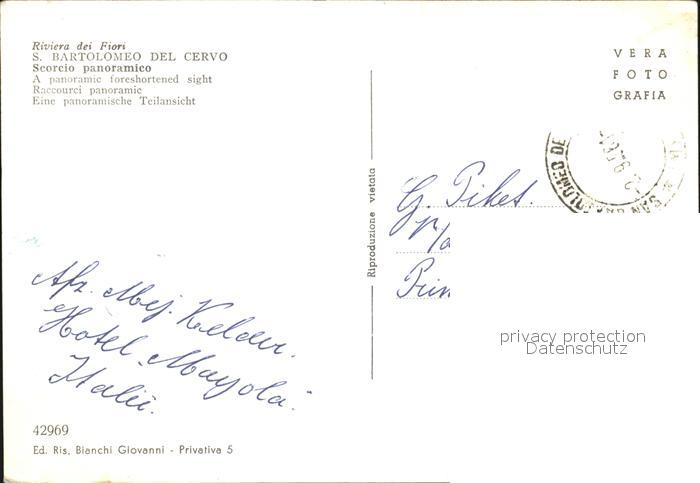 Riviera dei Fiori
S. BARTOLOMEO DEL CERVO
Scorcio panoramico
A panoramic foreshortened sight
Raccourci panoramic
Eine panoramische Teilansicht
VERA
FOTO
GRAFIA
Riproduzione vietata
G. Piket.
Afz. Mej. Kelder.
Hotel "Mayola".
Italië.
privacy protection
Datenschutz
42969
Ed. Ris. Bianchi Giovanni - Privativa 5